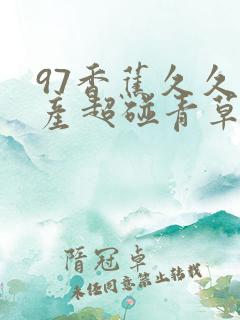 97香蕉久久
产超碰青草
隋冠卓
未经同意禁止转载